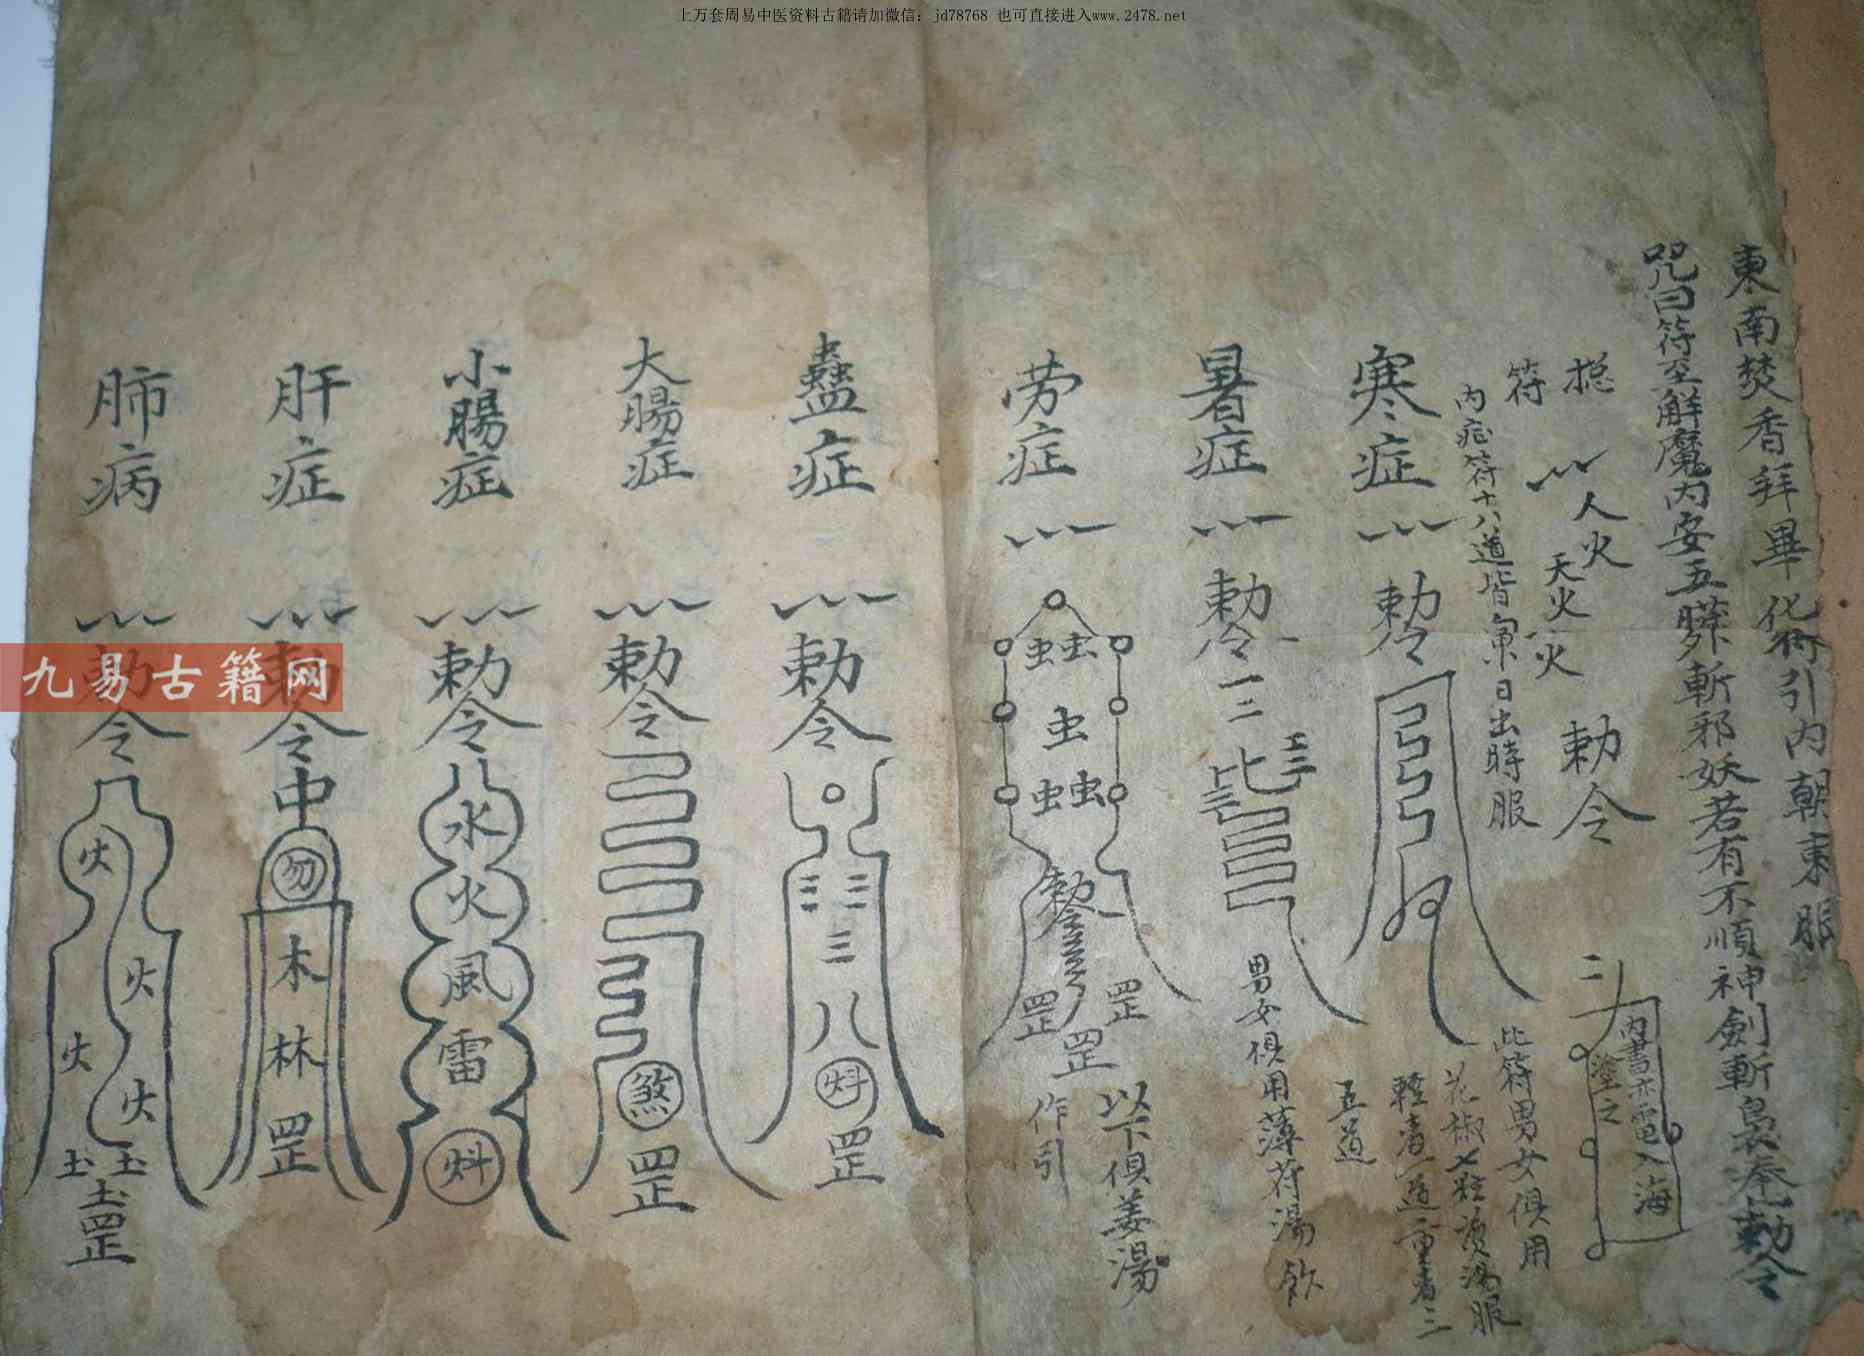 上万套周易中医资料古籍请加微信：jd78768 也可直接进入www.2478.net
東南焚香拜畢化符引内朝東服
咒曰符至解魔内安五臟斬邪妖若有不順神劍斬裊奉勅令
搃符
人火
天火
火
勅令
内書赤電入海
塗之
内症符十八道皆向東日出時服
寒症
勅令
弓弓弓
此符男女俱用
花椒七粒煎湯服
輕者一道重者三
五道
暑症
勅令
男女俱用薄荷湯飲
劳症
虫虫
虫
虫虫
勅令
罡
罡
罡
以下俱姜湯
作引
蠱症
勅令
八
罡
大腸症
勅令
煞
罡
小腸症
勅令
水
火
風
雷
肝症
勅令
中
勿
木
林
罡
肺病
勅令
火
火
火
火
土
土
土
罡
九易古籍网